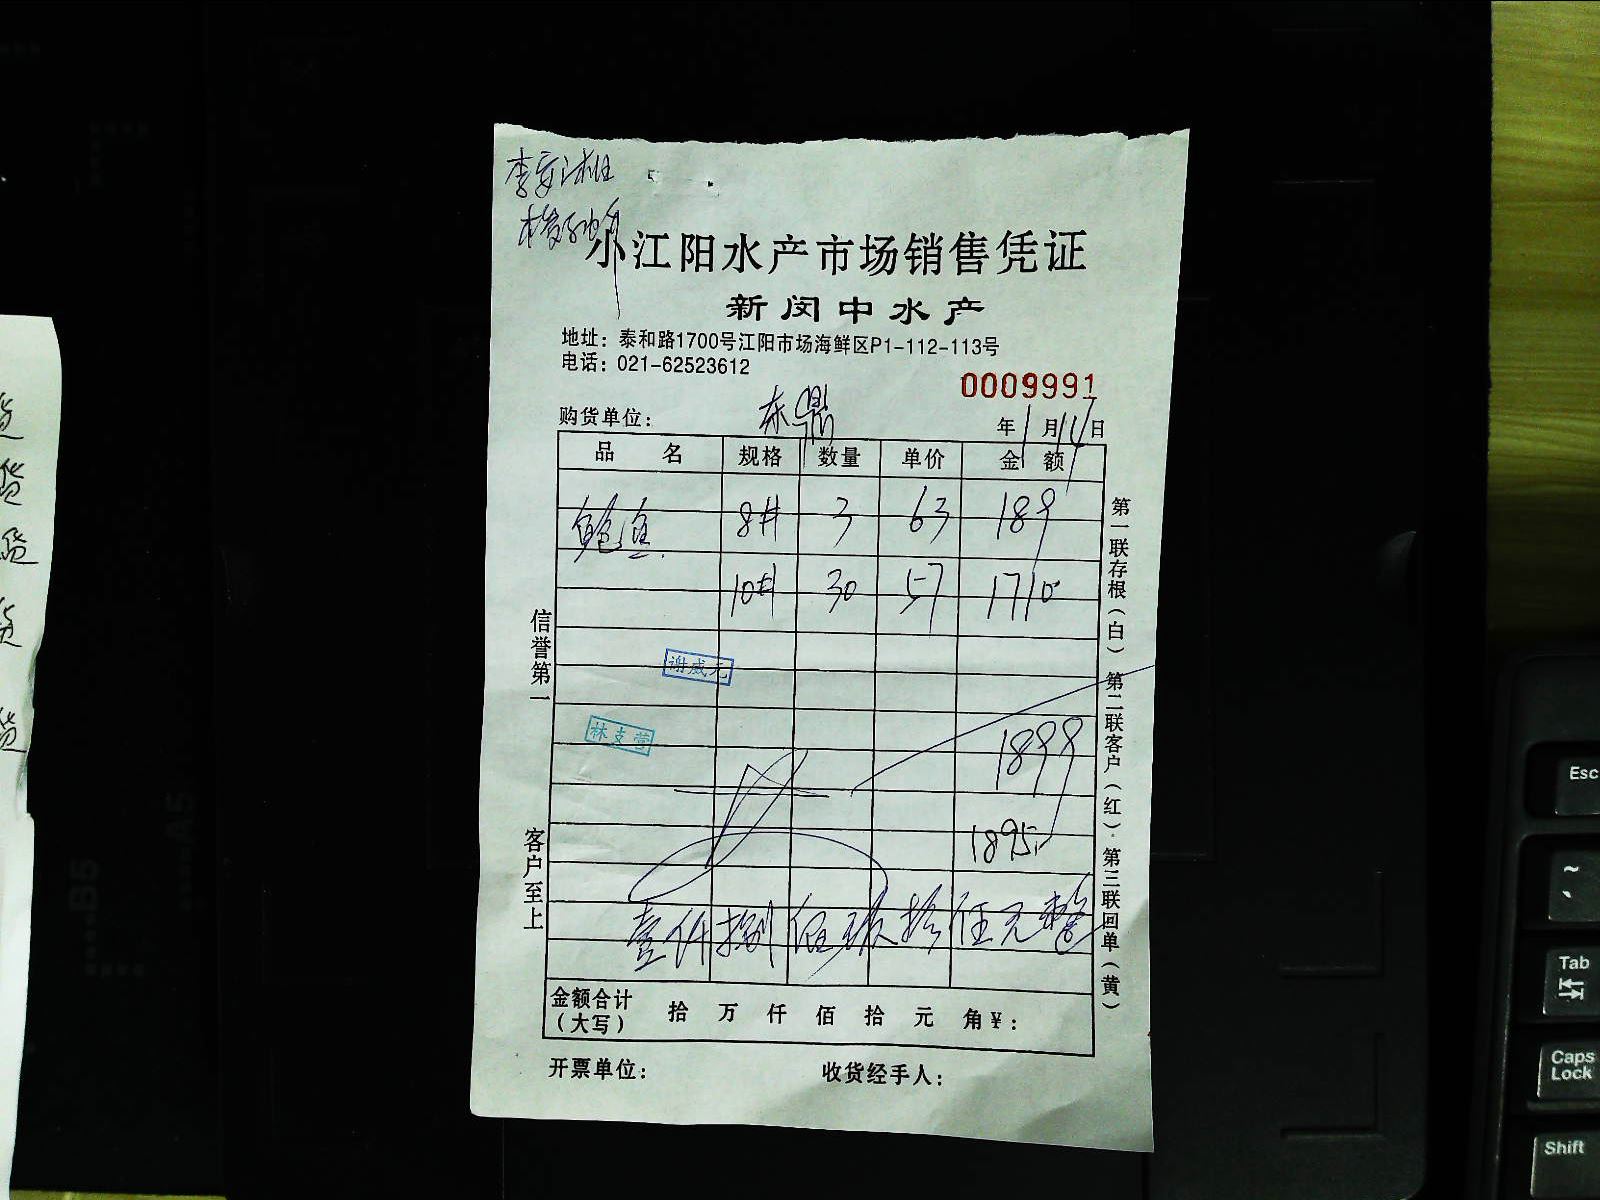 小江阳水产市场销售凭证
新闵中水产
地址：泰和路1700号江阳市场海鲜区P1-112-113号
电话：021-62523612
0009991
购货单位： 东鼎 年 1 月 14 日
品 名 规格 数量 单价 金 额
鲍鱼 8# 3 63 189
10# 30 57 1710
谢成元
林支营
1899
1895
壹仟捌佰玖拾伍元整
金额合计（大写） 拾 万 仟 佰 拾 元 角 ¥：
开票单位： 收货经手人：
信誉第一
客户至上
第一联存根（白） 第二联客户（红） 第三联回单（黄）
B5
A5
Esc
~
Tab
Caps Lock
Shift
货
货
货
货